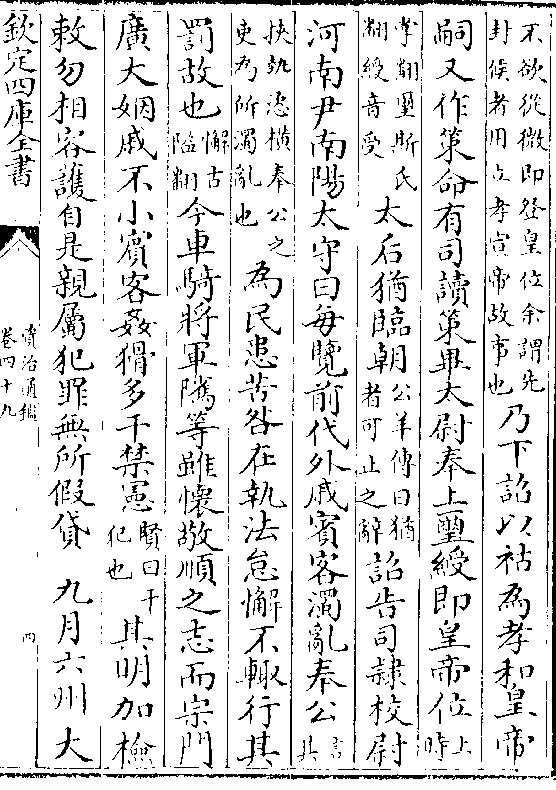 不欲從微即登皇位余謂先
封侯者用立孝宣帝故事也
乃下詔以祜為孝和皇帝
嗣又作策命有司讀策畢太尉奉上璽綬即皇帝位
上時
掌翻璽斯氏
翻綬音受
太后猶臨朝
公羊傳曰猶
者可止之辭
詔告司隸校尉
河南尹南陽太守曰每覽前代外戚賓客濁亂奉公
言其
扶執恣橫奉公之
吏為所濁亂也
為民患苦咎在執法怠懈不輒行其
罰故也
懈古
隘翻
今車騎將軍隲等雖懷敬順之志而宗門
廣大姻戚不小賓客姦猾多干禁憲
賢曰干
犯也
其明加檢
敕勿相容護自是親屬犯罪無所假貸 九月六州大
欽定四庫全書
資治通鑑
卷四十九
四